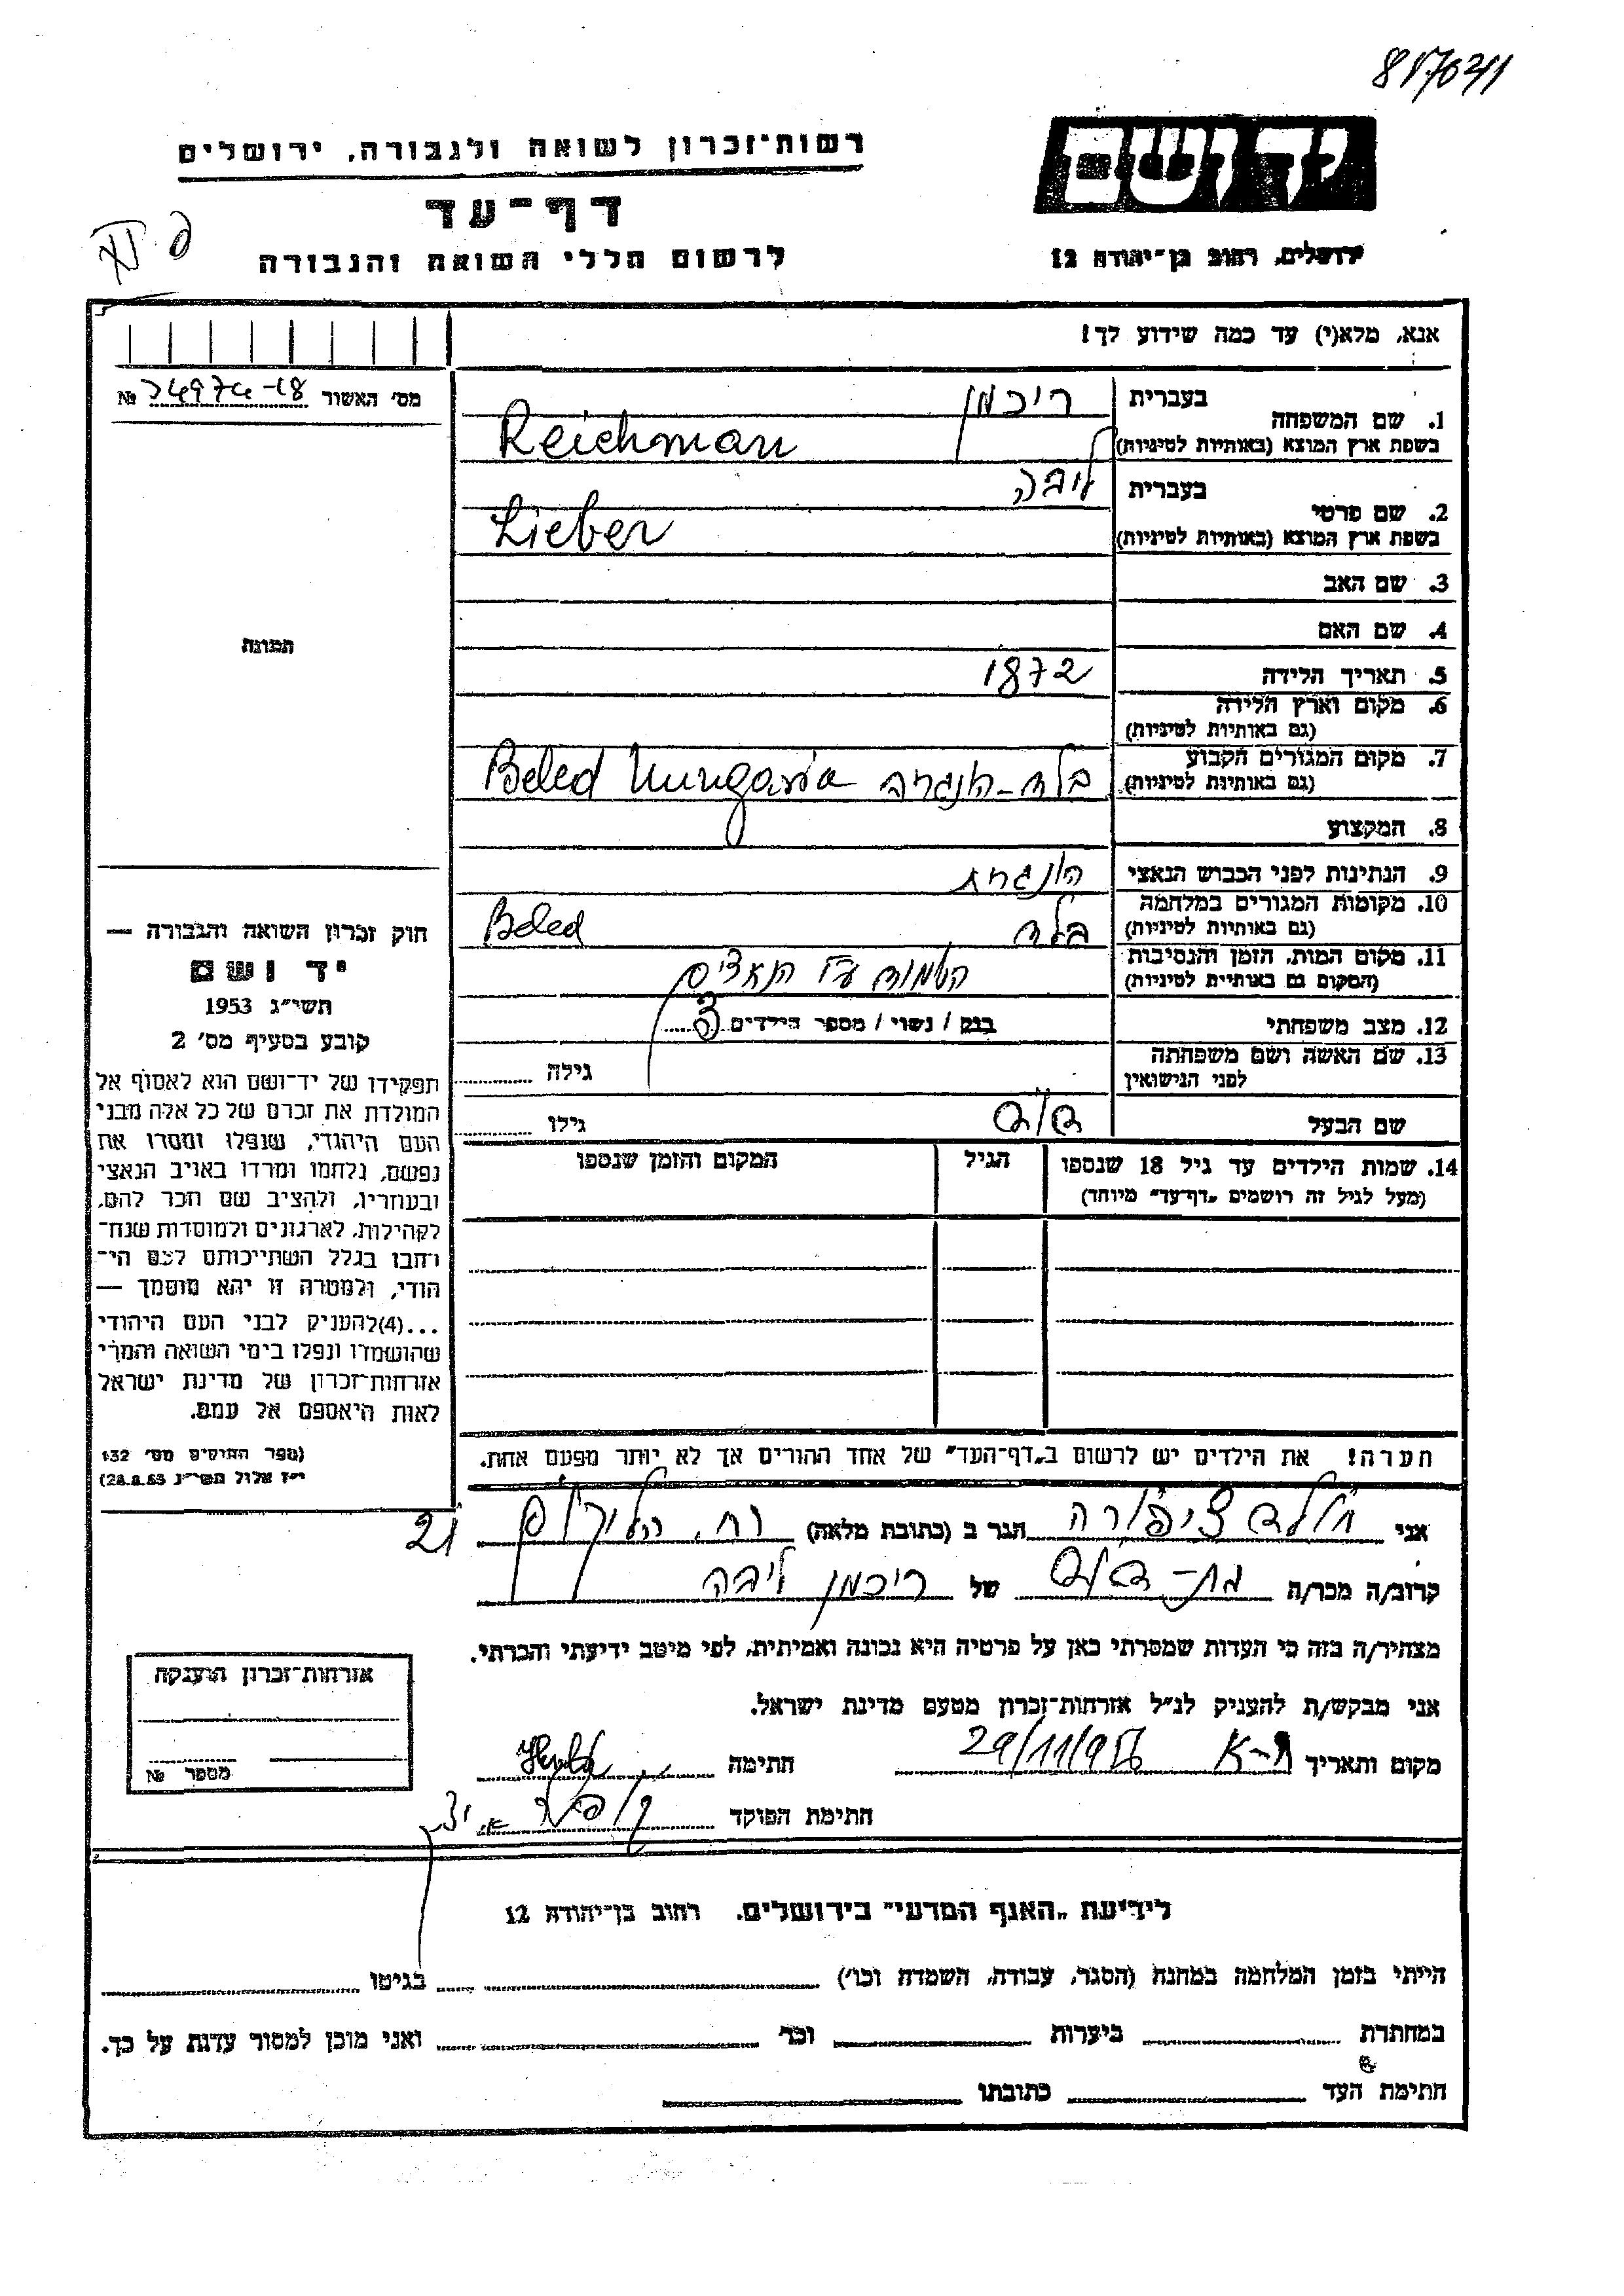 רשות־זכרון לשואה ולגבורה, ירושלים
דף־עד
לרשום חללי השואה והגבורה
יד ושם
ירושלים, רחוב בן־יהודה 12
אנא, מלא(י) עד כמה שידוע לך!
מס' האשור №
1. שם המשפחה
בעברית ריכמן
בשפת ארץ המוצא (באותיות לטיניות) Reichman
2. שם פרטי
בעברית ליבה
בשפת ארץ המוצא (באותיות לטיניות) Lieber
3. שם האב
4. שם האם
5. תאריך הלידה 1872
6. מקום וארץ הלידה
(גם באותיות לטיניות)
7. מקום המגורים הקבוע
(גם באותיות לטיניות) בלד - הונגריה Beled Hungaria
8. המקצוע
9. הנתינות לפני הכבוש הנאצי הונגרית
10. מקומות המגורים במלחמה
(גם באותיות לטיניות) בלד Beled
11. מקום המות, הזמן והנסיבות
(המקום גם באותיות לטיניות) הושמדה ע"י הנאצים
12. מצב משפחתי רווק / נשוי / מספר הילדים
13. שם האשה ושם משפחתה
לפני הנישואין גילה
שם הבעל דוד גילו
14. שמות הילדים עד גיל 18 שנספו
(מעל לגיל זה רושמים "דף־עד" מיוחד)
הגיל
המקום והזמן שנספו
תמונה
חוק זכרון השואה והגבורה —
יד ושם
תשי"ג 1953
קובע בסעיף מס' 2
תפקידו של יד־ושם הוא לאסוף אל
המולדת את זכרם של כל אלה מבני
העם היהודי, שנפלו ומסרו את
נפשם, נלחמו ומרדו באויב הנאצי
ובעוזריו, ולהציב שם וזכר להם,
לקהילות, לארגונים ולמוסדות שנח־
רחבו בגלל השתייכותם לעם הי־
הודי, ולמטרה זו יהא מוסמך —
...(4) להעניק לבני העם היהודי
שהושמדו ונפלו בימי השואה והמרי
אזרחות־זכרון של מדינת ישראל
לאות היאספם אל עמם.
(ספר החוקים מס' 132
י"ז אלול תשי"ג 28.8.53)
הערה! את הילדים יש לרשום ב"דף־העד" של אחד ההורים אך לא יותר מפעם אחת.
אני ציפורה הגר ב (כתובת מלאה) רח. 21
קרוב/ה מכר/ה בת-דוד של ריכמן ליבה
מצהיר/ה בזה כי העדות שמסרתי כאן על פרטיה היא נכונה ואמיתית, לפי מיטב ידיעתי והכרתי.
אני מבקש/ת להעניק לנ"ל אזרחות־זכרון מטעם מדינת ישראל.
מקום ותאריך ת-א 29/11/956 חתימה
חתימת הפוקד
אזרחות־זכרון הוענקה
מספר №
לידיעת "האגף המדעי" בירושלים, רחוב בן־יהודה 12
הייתי בזמן המלחמה במחנה (הסגר, עבודה, השמדה וכו') בגיטו
במחתרת ביערות וכו' ואני מוכן למסור עדות על כך.
חתימת העד כתובתו